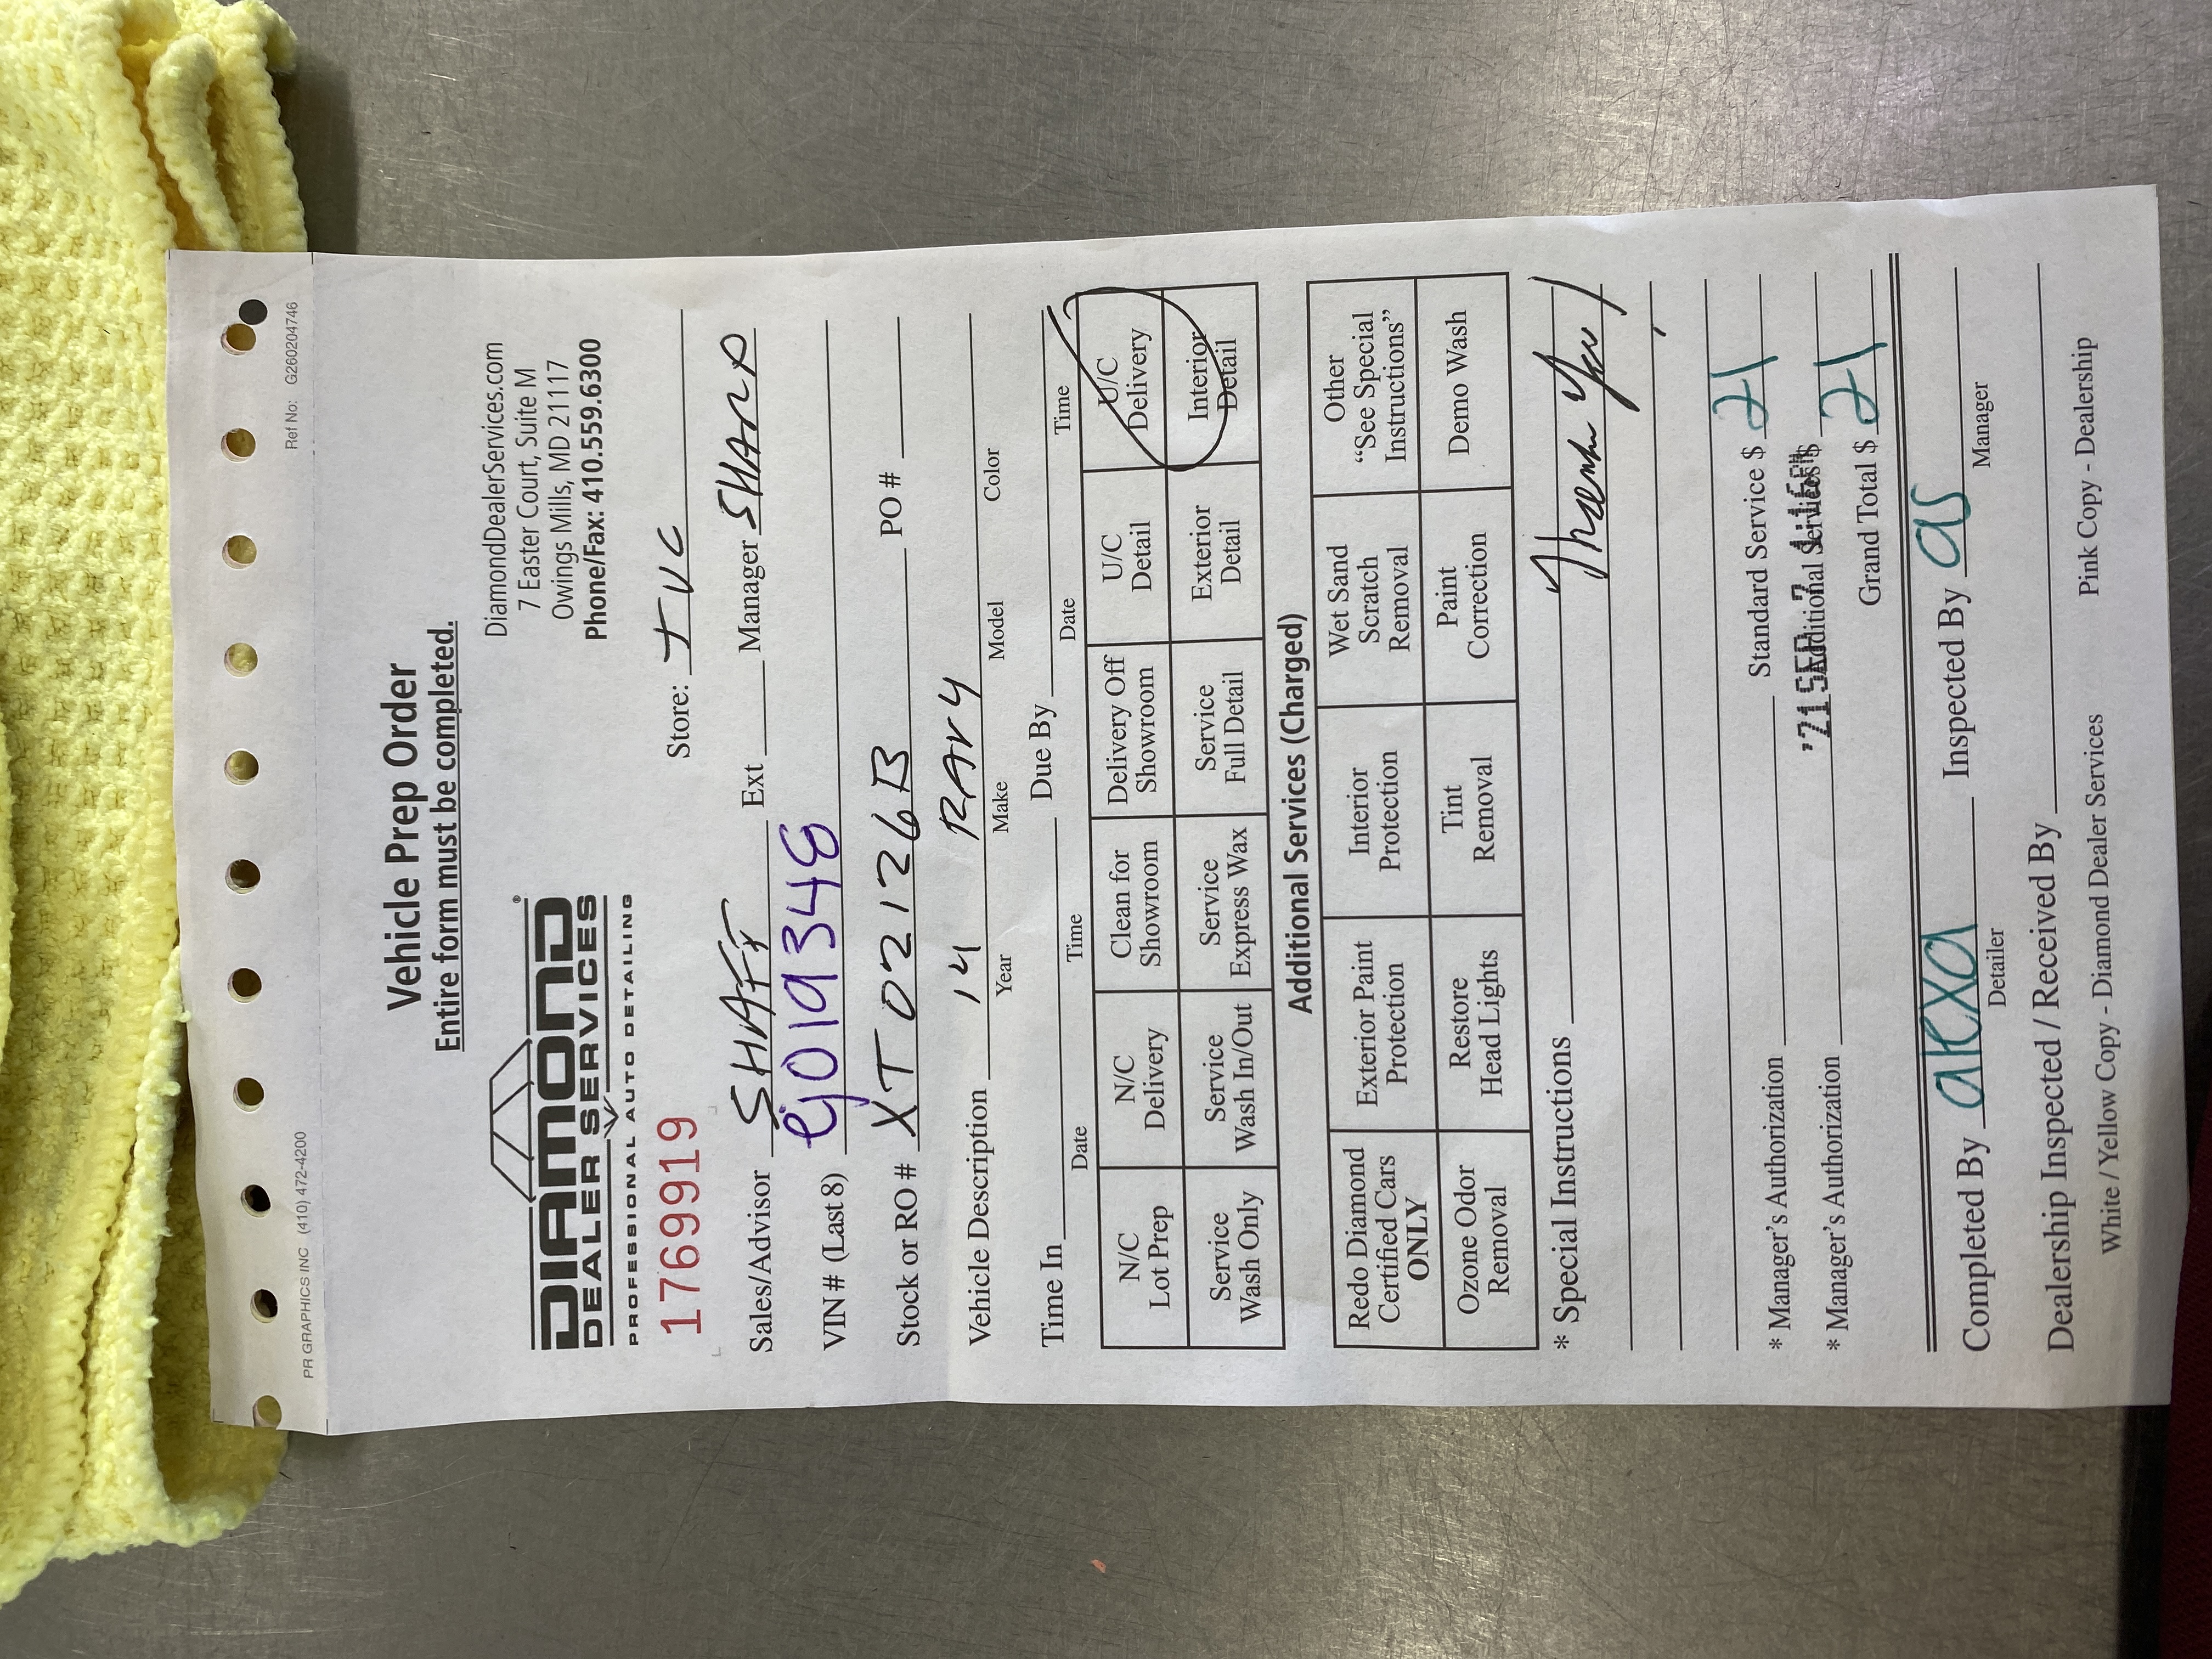 PR GRAPHICS INC (410) 472-4200 Ref No: G260204746
Vehicle Prep Order
Entire form must be completed.
DIAMOND®
DEALER SERVICES
PROFESSIONAL AUTO DETAILING
DiamondDealerServices.com
7 Easter Court, Suite M
Owings Mills, MD 21117
Phone/Fax: 410.559.6300
1769919
Store: TVC
Sales/Advisor SHAFT Ext Manager SHANA
VIN# (Last 8) EJ019348
Stock or RO # XT02126B PO #
Vehicle Description 14 RAV4
Year Make Model Color
Time In Due By
Date Time Date Time
N/C Lot Prep N/C Delivery Clean for Showroom Delivery Off Showroom U/C Detail U/C Delivery
Service Wash Only Service Wash In/Out Service Express Wax Service Full Detail Exterior Detail Interior Detail
Additional Services (Charged)
Redo Diamond Certified Cars ONLY Exterior Paint Protection Interior Protection Wet Sand Scratch Removal Other "See Special Instructions"
Ozone Odor Removal Restore Head Lights Tint Removal Paint Correction Demo Wash
* Special Instructions Thank You!
* Manager's Authorization Standard Service $ 21
* Manager's Authorization Additional Services $
'21 SEP 7
Grand Total $ 21
Completed By alexa Inspected By as
Detailer Manager
Dealership Inspected / Received By
White / Yellow Copy - Diamond Dealer Services Pink Copy - Dealership